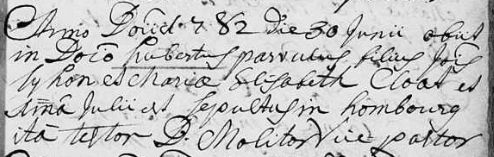 Anno Domi 1782 die 30 Junii obiit
in Dno hubertus parvulus filius Jois
Lyhon et maria Elisabeth Cloas et
Julii est sepultus in hombourg
ita testor D. Molitor vice pastor